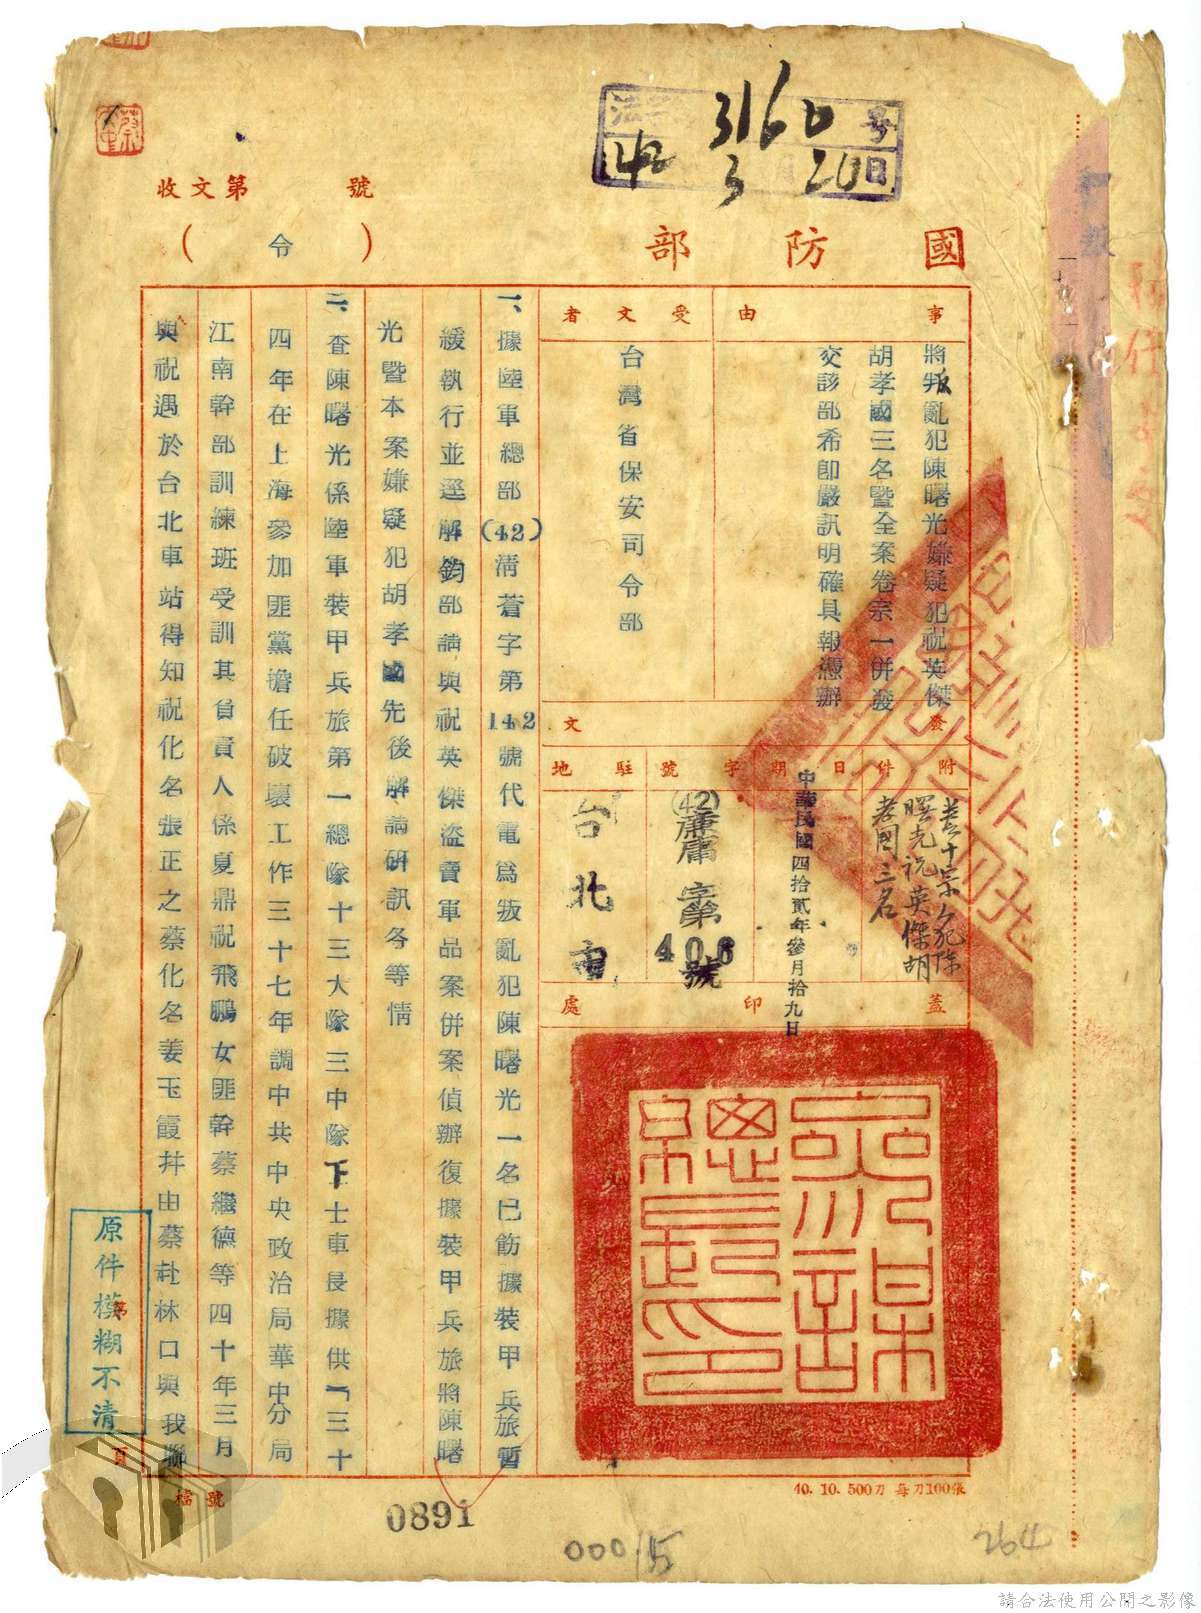 法 3160 号
42 3 20日
收文第 號
國防部
(令)
事由
將叛亂犯陳曙光嫌疑犯祝英傑
胡孝國三名暨全案卷宗一併發
交該部希即嚴訊明確具報憑辦
受文者
台灣省保安司令部
發文
附件
卷十宗人犯陳
曙光祝英傑胡
孝國三名
日期
中華民國四拾貳年參月拾九日
字號
(42)廉庸字第
406號
駐地
台北市
蓋印處
參謀總長印
一、據陸軍總部(42)清蒼字第142號代電為叛亂犯陳曙光一名已飭據裝甲兵旅暫
緩執行並逕解鈞部請與祝英傑盜賣軍品案併案偵辦復據裝甲兵旅將陳曙
光暨本案嫌疑犯胡孝國先後解請研訊各等情
二、查陳曙光係陸軍裝甲兵旅第一總隊十三大隊三中隊下士車長據供「三十
四年在上海參加匪黨擔任破壞工作三十七年調中共中央政治局華中分局
江南幹部訓練班受訓其負責人係夏鼎祝飛鵬女匪幹蔡繼德等四十年三月
與祝遇於台北車站得知祝化名張正之蔡化名姜玉霞并由蔡赴林口與我聯
原件模糊不清
第
頁
檔號
40. 10. 500刀 每刀100張
0891
00015
264
請合法使用公開之影像